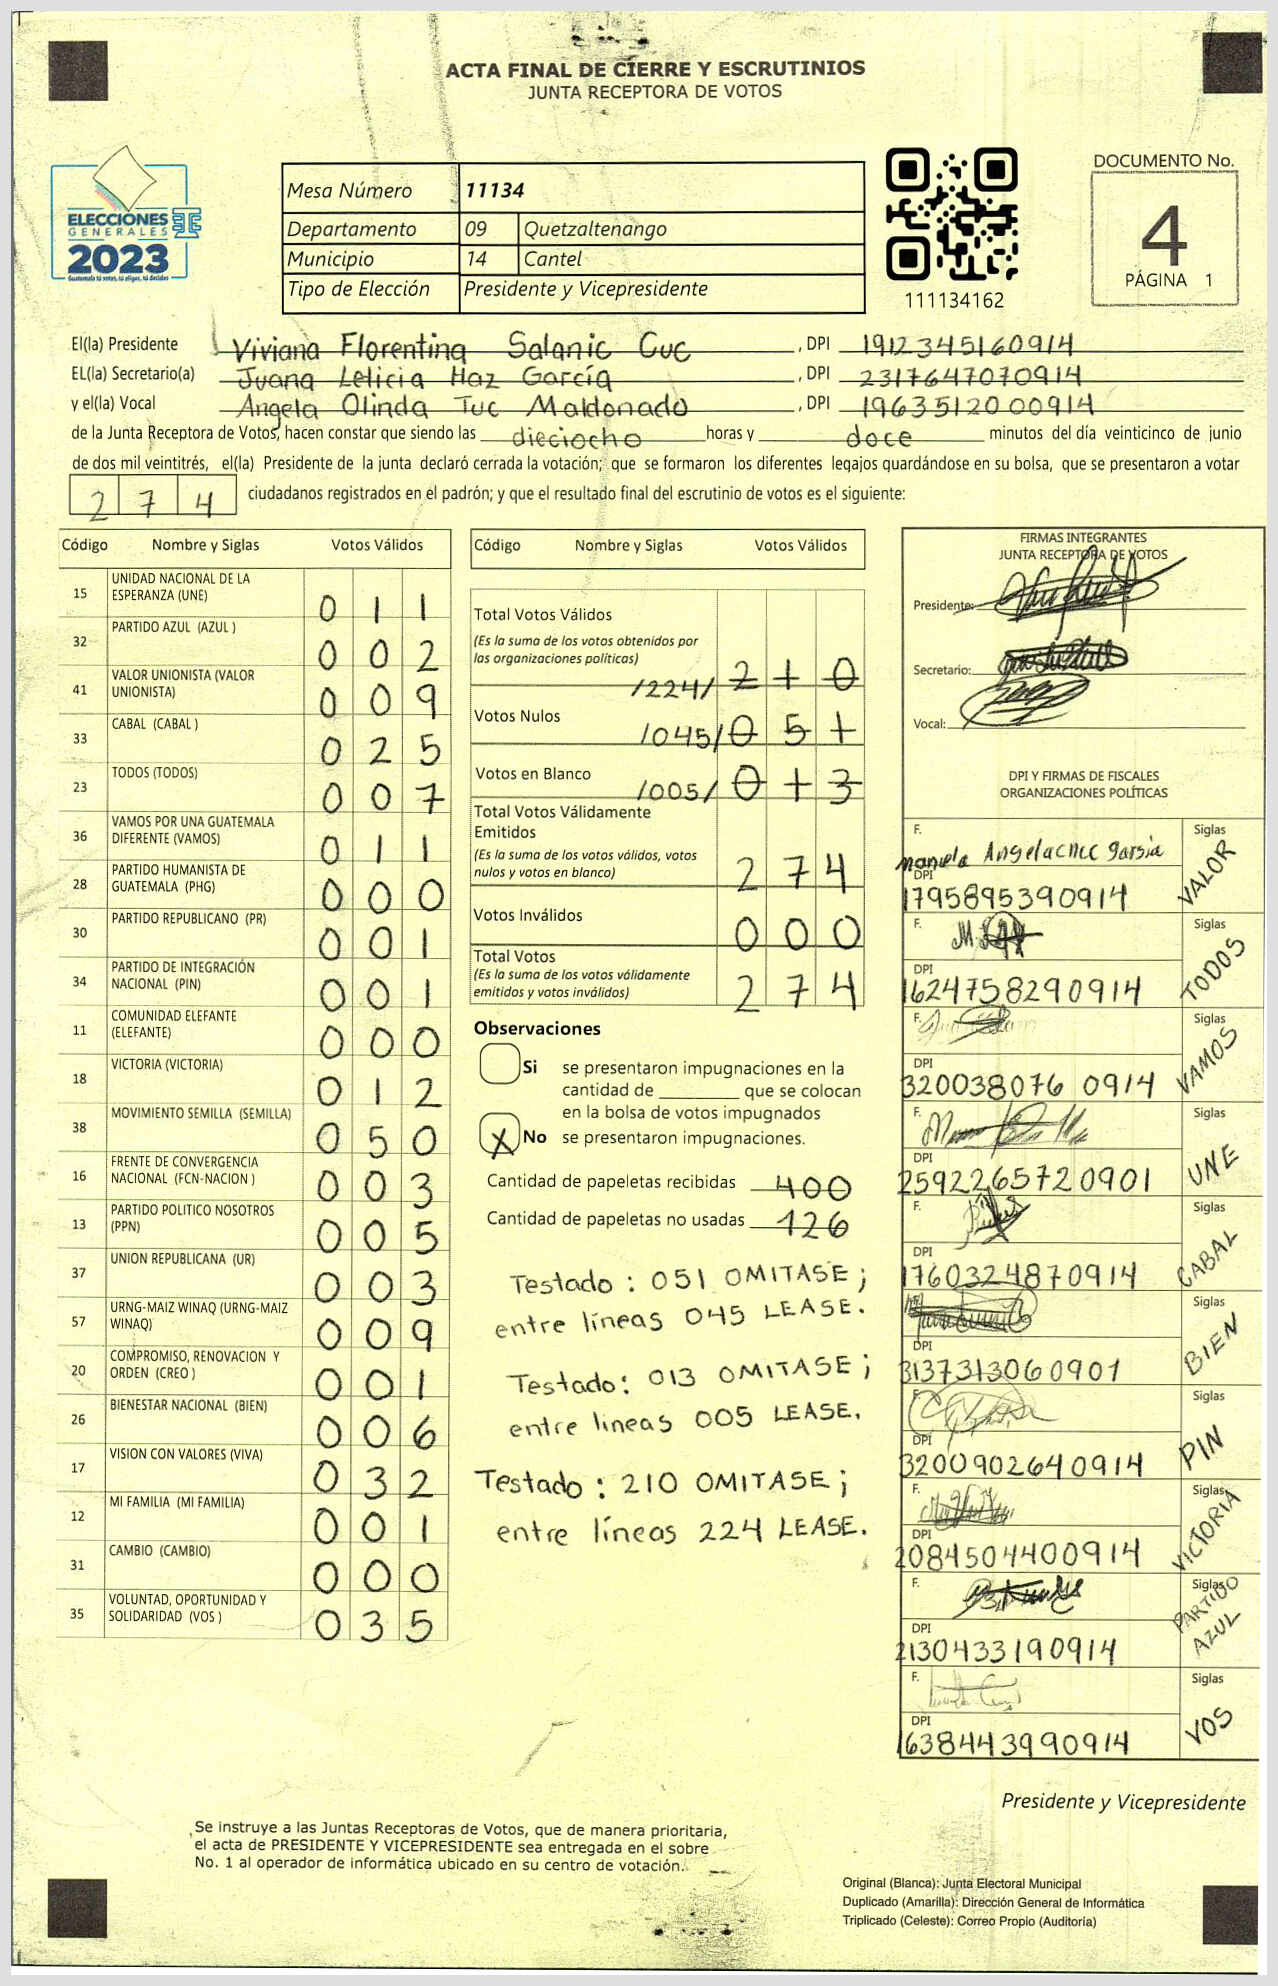 ACTA FINAL DE CIERRE Y ESCRUTINIOS
JUNTA RECEPTORA DE VOTOS
ELECCIONES
GENERALES
2023
Guatemala tú votas, tú eliges, tú decides
Mesa Número 11134
Departamento 09 Quetzaltenango
Municipio 14 Cantel
Tipo de Elección Presidente y Vicepresidente
111134162
DOCUMENTO No.
4
PÁGINA 1
El(la) Presidente Viviana Florentina Salanic Cuc, DPI 1912345160914
EL(la) Secretario(a) Juana Leticia Haz García, DPI 2317647070914
y el(la) Vocal Angela Olinda Tuc Maldonado, DPI 1963512000914
de la Junta Receptora de Votos, hacen constar que siendo las dieciocho horas y doce minutos del día veinticinco de junio
de dos mil veintitrés, el(la) Presidente de la junta declaró cerrada la votación; que se formaron los diferentes legajos guardándose en su bolsa, que se presentaron a votar
2 7 4 ciudadanos registrados en el padrón; y que el resultado final del escrutinio de votos es el siguiente:
Código Nombre y Siglas Votos Válidos
15 UNIDAD NACIONAL DE LA ESPERANZA (UNE) 0 1 1
32 PARTIDO AZUL (AZUL ) 0 0 2
41 VALOR UNIONISTA (VALOR UNIONISTA) 0 0 9
33 CABAL (CABAL ) 0 2 5
23 TODOS (TODOS) 0 0 7
36 VAMOS POR UNA GUATEMALA DIFERENTE (VAMOS) 0 1 1
28 PARTIDO HUMANISTA DE GUATEMALA (PHG) 0 0 0
30 PARTIDO REPUBLICANO (PR) 0 0 1
34 PARTIDO DE INTEGRACIÓN NACIONAL (PIN) 0 0 1
11 COMUNIDAD ELEFANTE (ELEFANTE) 0 0 0
18 VICTORIA (VICTORIA) 0 1 2
38 MOVIMIENTO SEMILLA (SEMILLA) 0 5 0
16 FRENTE DE CONVERGENCIA NACIONAL (FCN-NACION ) 0 0 3
13 PARTIDO POLITICO NOSOTROS (PPN) 0 0 5
37 UNION REPUBLICANA (UR) 0 0 3
57 URNG-MAIZ WINAQ (URNG-MAIZ WINAQ) 0 0 9
20 COMPROMISO, RENOVACION Y ORDEN (CREO ) 0 0 1
26 BIENESTAR NACIONAL (BIEN) 0 0 6
17 VISION CON VALORES (VIVA) 0 3 2
12 MI FAMILIA (MI FAMILIA) 0 0 1
31 CAMBIO (CAMBIO) 0 0 0
35 VOLUNTAD, OPORTUNIDAD Y SOLIDARIDAD (VOS ) 0 3 5
Código Nombre y Siglas Votos Válidos
Total Votos Válidos
(Es la suma de los votos obtenidos por
las organizaciones políticas)
/224/ 2 1 0
Votos Nulos /045/ 0 5 1
Votos en Blanco /005/ 0 1 3
Total Votos Válidamente
Emitidos
(Es la suma de los votos válidos, votos
nulos y votos en blanco) 2 7 4
Votos Inválidos 0 0 0
Total Votos
(Es la suma de los votos válidamente
emitidos y votos inválidos) 2 7 4
Observaciones
Si se presentaron impugnaciones en la
cantidad de ________ que se colocan
en la bolsa de votos impugnados
X No se presentaron impugnaciones.
Cantidad de papeletas recibidas 400
Cantidad de papeletas no usadas 126
Testado : 051 OMITASE ;
entre líneas 045 LEASE.
Testado: 013 OMITASE ;
entre lineas 005 LEASE.
Testado : 210 OMITASE ;
entre líneas 224 LEASE.
FIRMAS INTEGRANTES
JUNTA RECEPTORA DE VOTOS
Presidente:
Secretario:
Vocal:
DPI Y FIRMAS DE FISCALES
ORGANIZACIONES POLÍTICAS
F. Siglas
DPI 1795895390914 VALOR
F. Siglas
DPI 1624758290914 TODOS
F. Siglas
DPI 320038076 0914 VAMOS
F. Siglas
DPI 2592265720901 UNE
F. Siglas
DPI 1760324870914 CABAL
F. Siglas
DPI 3137313060901 BIEN
F. Siglas
DPI 3200902640914 PIN
F. Siglas
DPI 2084504400914 VICTORIA
F. Siglas
DPI 2130433190914 PARTIDO AZUL
F. Siglas
DPI 1638443990914 VOS
Presidente y Vicepresidente
Se instruye a las Juntas Receptoras de Votos, que de manera prioritaria,
el acta de PRESIDENTE Y VICEPRESIDENTE sea entregada en el sobre
No. 1 al operador de informática ubicado en su centro de votación.
Original (Blanca): Junta Electoral Municipal
Duplicado (Amarilla): Dirección General de Informática
Triplicado (Celeste): Correo Propio (Auditoría)